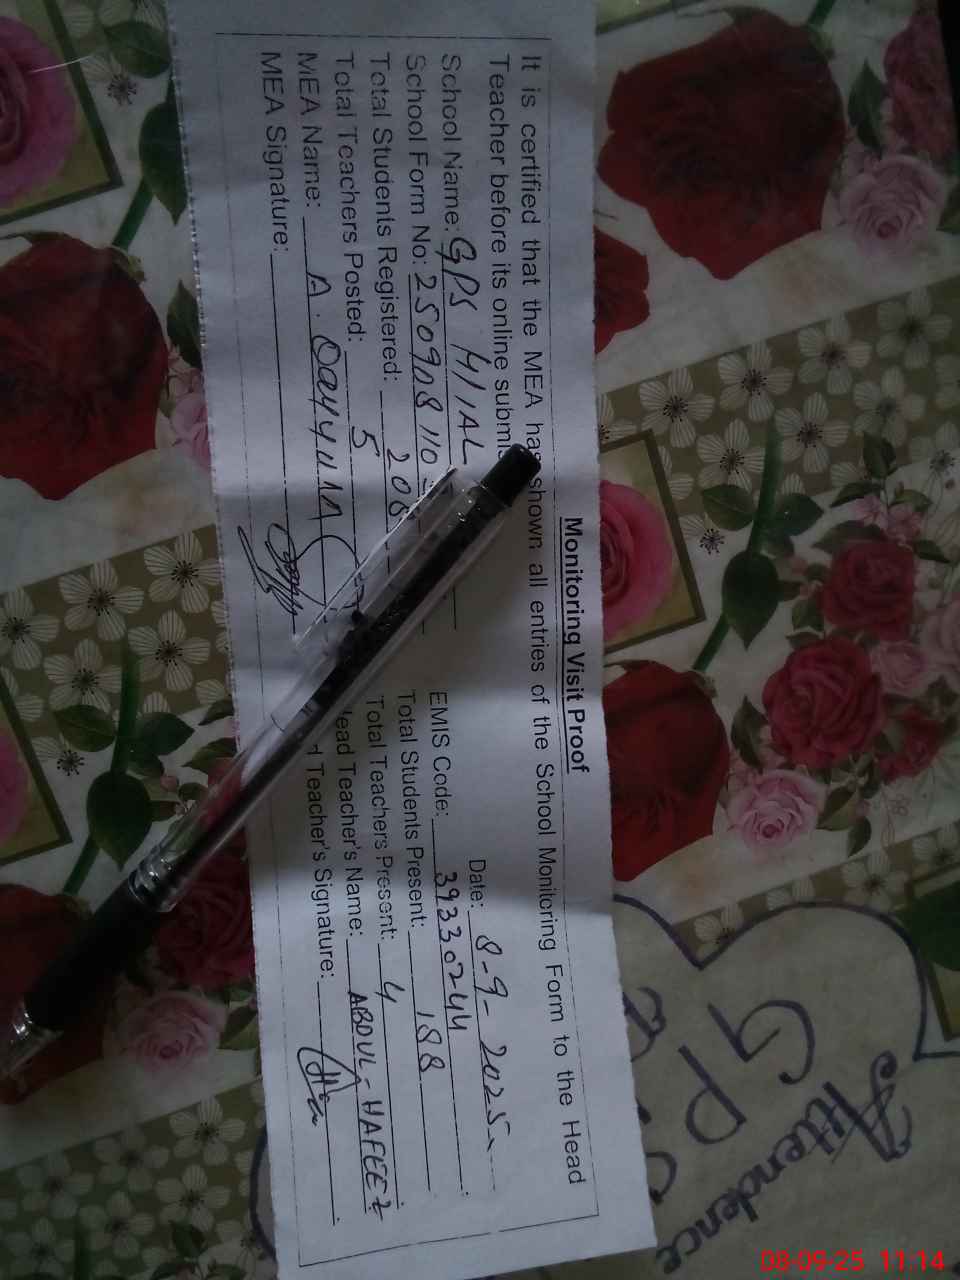 Monitoring Visit Proof
It is certified that the MEA has shown all entries of the School Monitoring Form to the Head
Teacher before its online submis
Date: 8-9-2025
School Name: GPS HIAL
EMIS Code: 39330244
School Form No: 250908110
Total Students Present: 188
Total Students Registered: 208
Total Teachers Present: 4
Total Teachers Posted: 5
ead Teacher's Name: ABDUL-HAFEEZ
MEA Name: A. Qayyum
d Teacher's Signature:
MEA Signature:
Attendence
GP
08-09-25 11:14